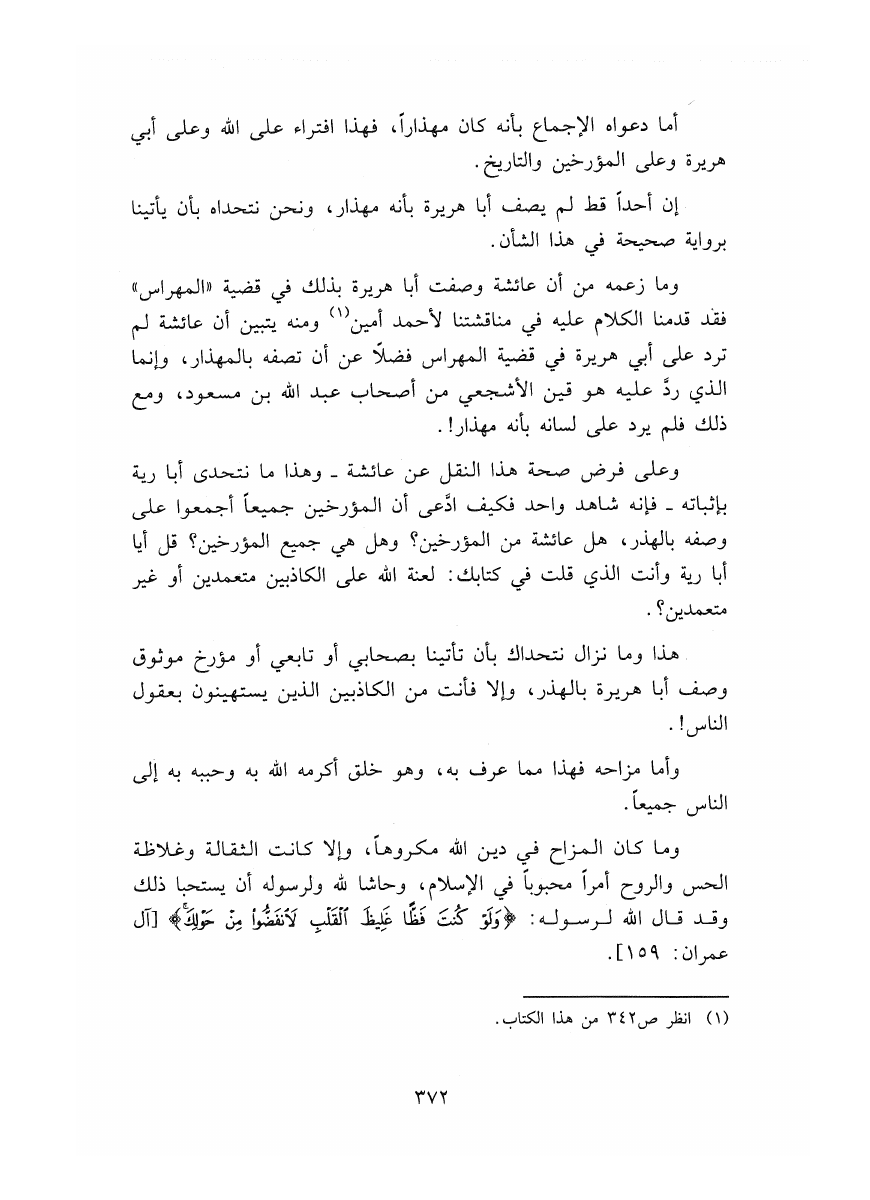 أما دعواه الإجماع بأنه كان مهذاراً، فهذا افتراء على الله وعلى أبي
هريرة وعلى المؤرخين والتاريخ.
إن أحداً قط لم يصف أبا هريرة بأنه مهذار، ونحن نتحداه بأن يأتينا
برواية صحيحة في هذا الشأن.
وما زعمه من أن عائشة وصفت أبا هريرة بذلك في قضية «المهراس»
فقد قدمنا الكلام عليه في مناقشتنا لأحمد أمين(١) ومنه يتبين أن عائشة لم
ترد على أبي هريرة في قضية المهراس فضلاً عن أن تصفه بالمهذار، وإنما
الذي ردَّ عليه هو قين الأشجعي من أصحاب عبد الله بن مسعود، ومع
ذلك فلم يرد على لسانه بأنه مهذار!.
وعلى فرض صحة هذا النقل عن عائشة ـ وهذا ما نتحدى أبا رية
بإثباته ـ فإنه شاهد واحد فكيف ادَّعى أن المؤرخين جميعاً أجمعوا على
وصفه بالهذر، هل عائشة من المؤرخين؟ وهل هي جميع المؤرخين؟ قل أيا
أبا رية وأنت الذي قلت في كتابك: لعنة الله على الكاذبين متعمدين أو غير
متعمدين؟.
هذا وما نزال نتحداك بأن تأتينا بصحابي أو تابعي أو مؤرخ موثوق
وصف أبا هريرة بالهذر، وإلا فأنت من الكاذبين الذين يستهينون بعقول
الناس!.
وأما مزاحه فهذا مما عرف به، وهو خلق أكرمه الله به وحببه به إلى
الناس جميعاً.
وما كان المزاح في دين الله مكروهاً، وإلا كانت الثقالة وغلاظة
الحس والروح أمراً محبوباً في الإسلام، وحاشا لله ولرسوله أن يستحبا ذلك
وقد قال الله لرسوله: ﴿وَلَوْ كُنتَ فَظًّا غَلِيظَ ٱلْقَلْبِ لَٱنفَضُّوا۟ مِنْ حَوْلِكَۖ﴾ [آل
عمران: ١٥٩].
(١) انظر ص٣٤٢ من هذا الكتاب.
٣٧٢